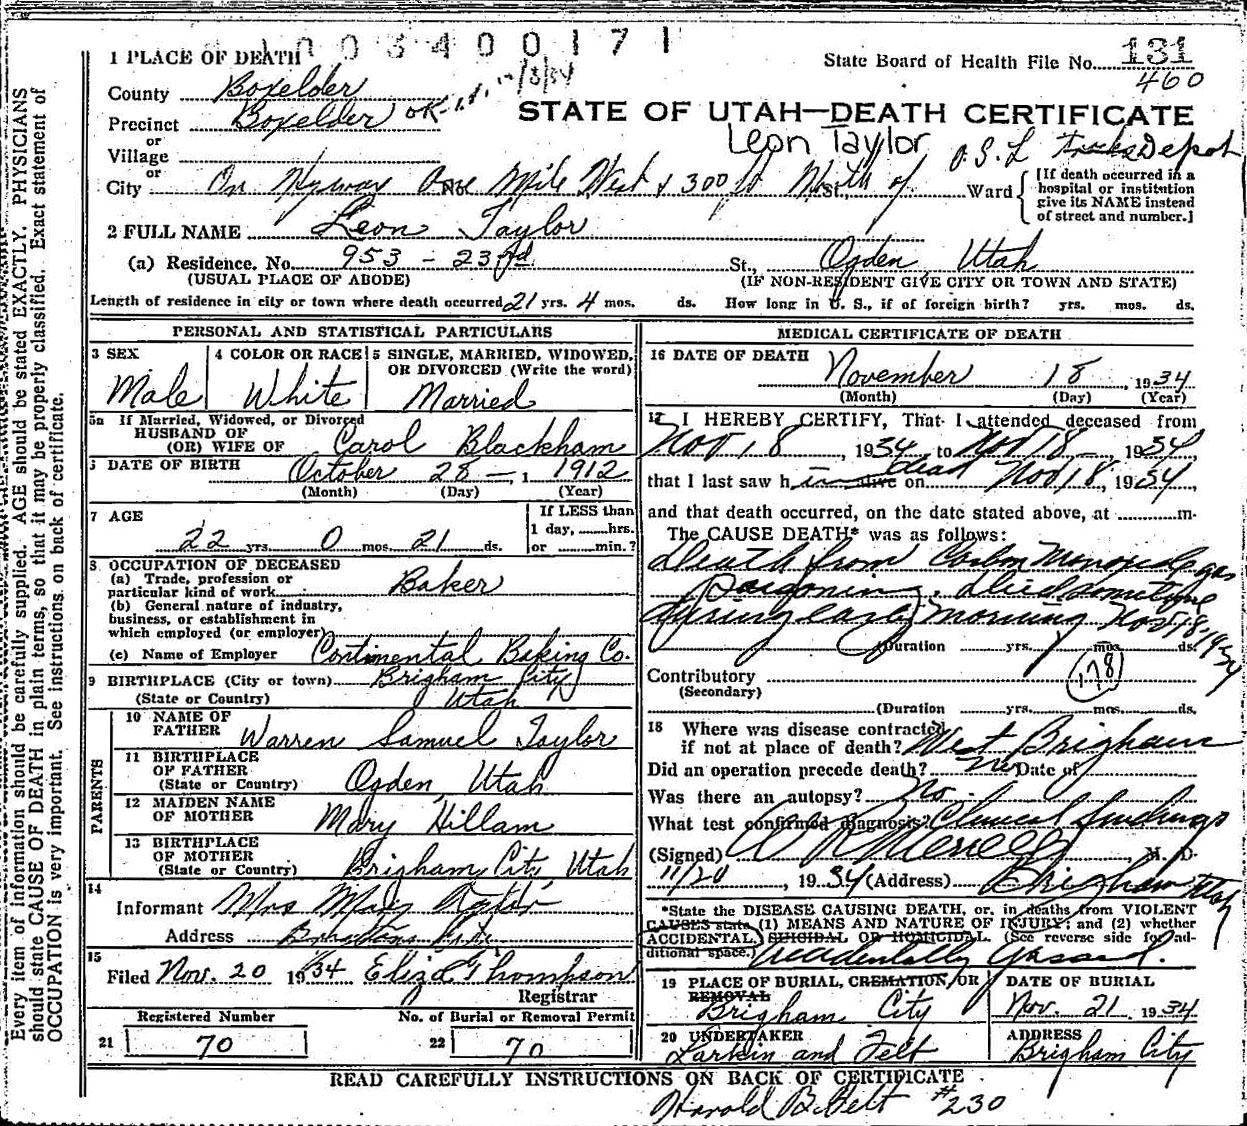 1003400171
1 PLACE OF DEATH
State Board of Health File No. 131
460
County Boxelder
Precinct Boxelder OK
or
Village
or
City On Hyway One Mile West & 300 ft North of St., Ward
O.S.L Depot
STATE OF UTAH—DEATH CERTIFICATE
Leon Taylor
[If death occurred in a
hospital or institution
give its NAME instead
of street and number.]
2 FULL NAME Leon Taylor
(a) Residence. No. 953 - 23rd St., Ogden, Utah
(USUAL PLACE OF ABODE) (IF NON-RESIDENT GIVE CITY OR TOWN AND STATE)
Length of residence in city or town where death occurred 21 yrs. 4 mos. ds. How long in U. S., if of foreign birth? yrs. mos. ds.
Every item of information should be carefully supplied. AGE should be stated EXACTLY. PHYSICIANS
should state CAUSE OF DEATH in plain terms, so that it may be properly classified. Exact statement of
OCCUPATION is very important. See instructions on back of certificate.
PERSONAL AND STATISTICAL PARTICULARS
3 SEX
Male
4 COLOR OR RACE
White
5 SINGLE, MARRIED, WIDOWED,
OR DIVORCED (Write the word)
Married
5a If Married, Widowed, or Divorced
HUSBAND OF
(OR) WIFE OF Carol Blackham
6 DATE OF BIRTH October 28 —, 1912
(Month) (Day) (Year)
7 AGE
22 yrs. 0 mos. 21 ds.
If LESS than
1 day, hrs.
or min.?
8 OCCUPATION OF DECEASED
(a) Trade, profession or
particular kind of work Baker
(b) General nature of industry,
business, or establishment in
which employed (or employer)
(c) Name of Employer Continental Baking Co.
9 BIRTHPLACE (City or town) Brigham City
(State or Country) Utah
PARENTS
10 NAME OF
FATHER Warren Samuel Taylor
11 BIRTHPLACE
OF FATHER
(State or Country) Ogden, Utah
12 MAIDEN NAME
OF MOTHER Mary Hillam
13 BIRTHPLACE
OF MOTHER
(State or Country) Brigham City Utah
14
Informant Mrs Mary Taylor
Address Brigham City
15
Filed Nov. 20 1934 Eliza Thompson
Registrar
Registered Number No. of Burial or Removal Permit
21 70 22 70
MEDICAL CERTIFICATE OF DEATH
16 DATE OF DEATH
November 18, 1934
(Month) (Day) (Year)
17 I HEREBY CERTIFY, That I attended deceased from
Nov 18, 1934 to Nov 18, 1934
that I last saw him alive dead on Nov 18, 1934,
and that death occurred, on the date stated above, at m.
The CAUSE DEATH* was as follows:
Death from Carbon Monoxide gas
poisoning. died sometime
during early morning Nov 18-1934
(Duration yrs. mos. ds.
Contributory
(Secondary)
178
(Duration yrs. mos. ds.
18 Where was disease contracted
if not at place of death? West Brigham
Did an operation precede death? no Date of
Was there an autopsy? No.
What test confirmed diagnosis? Clinical findings
(Signed) M. D.
11/20, 1934 (Address) Brigham Utah
*State the DISEASE CAUSING DEATH, or, in deaths from VIOLENT
CAUSES state (1) MEANS AND NATURE OF INJURY; and (2) whether
ACCIDENTAL, SUICIDAL OR HOMICIDAL. (See reverse side for ad-
ditional space.) Accidentally Gassed.
19 PLACE OF BURIAL, CREMATION, OR
REMOVAL
Brigham City
DATE OF BURIAL
Nov. 21 1934
20 UNDERTAKER
Larkin and Felt
ADDRESS
Brigham City
READ CAREFULLY INSTRUCTIONS ON BACK OF CERTIFICATE
Harold B. Felt #230